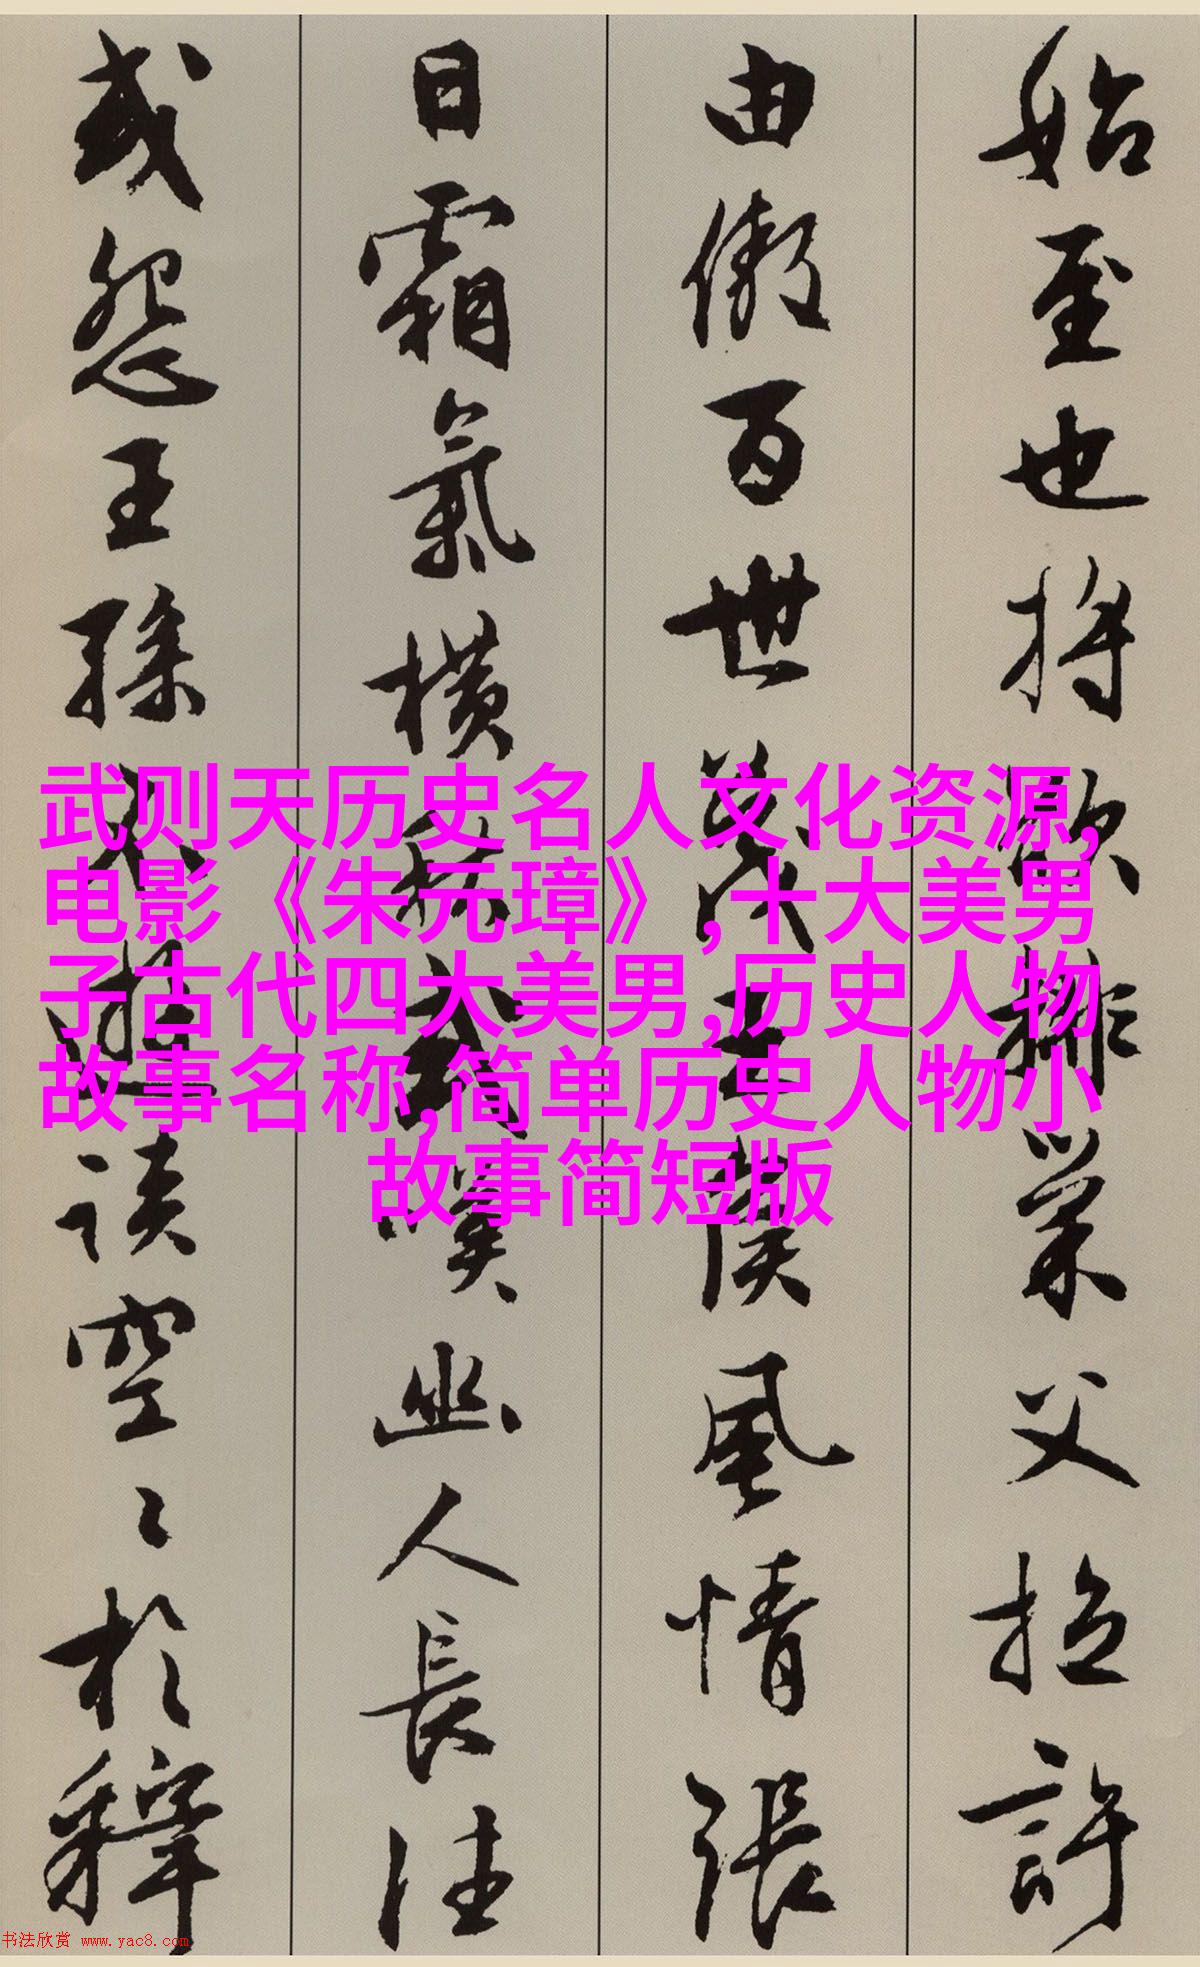 始至也將欲排巢父拉許
由傲百世蔑王侯風情張
日霜氣橫秋或嘆幽人長往
或怨王孫不遊談空〻於釋
武则天历史名人文化资源,
电影《朱元璋》,十大美男
子古代四大美男,历史人物
故事名称,简单历史人物小
故事简短版
书法欣赏 www.yac8.com